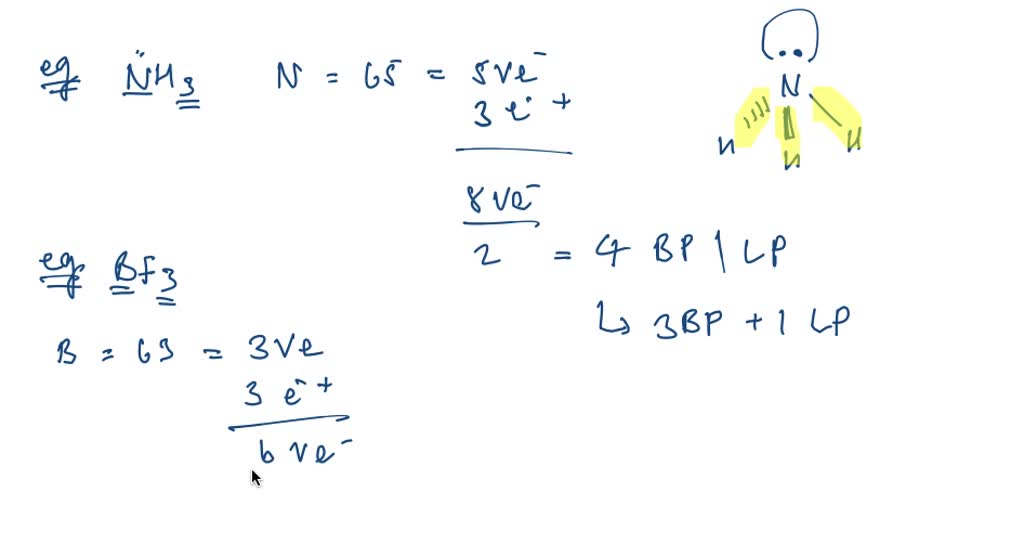 eg N̈H3 N = G5 = 5ve⁻
3 e⁻ +
8 ve⁻
2 = 4 BP | LP
↳ 3BP + 1 LP
N
H H H
eg BF3
B = G3 = 3Ve
3 e⁻ +
6 ve⁻